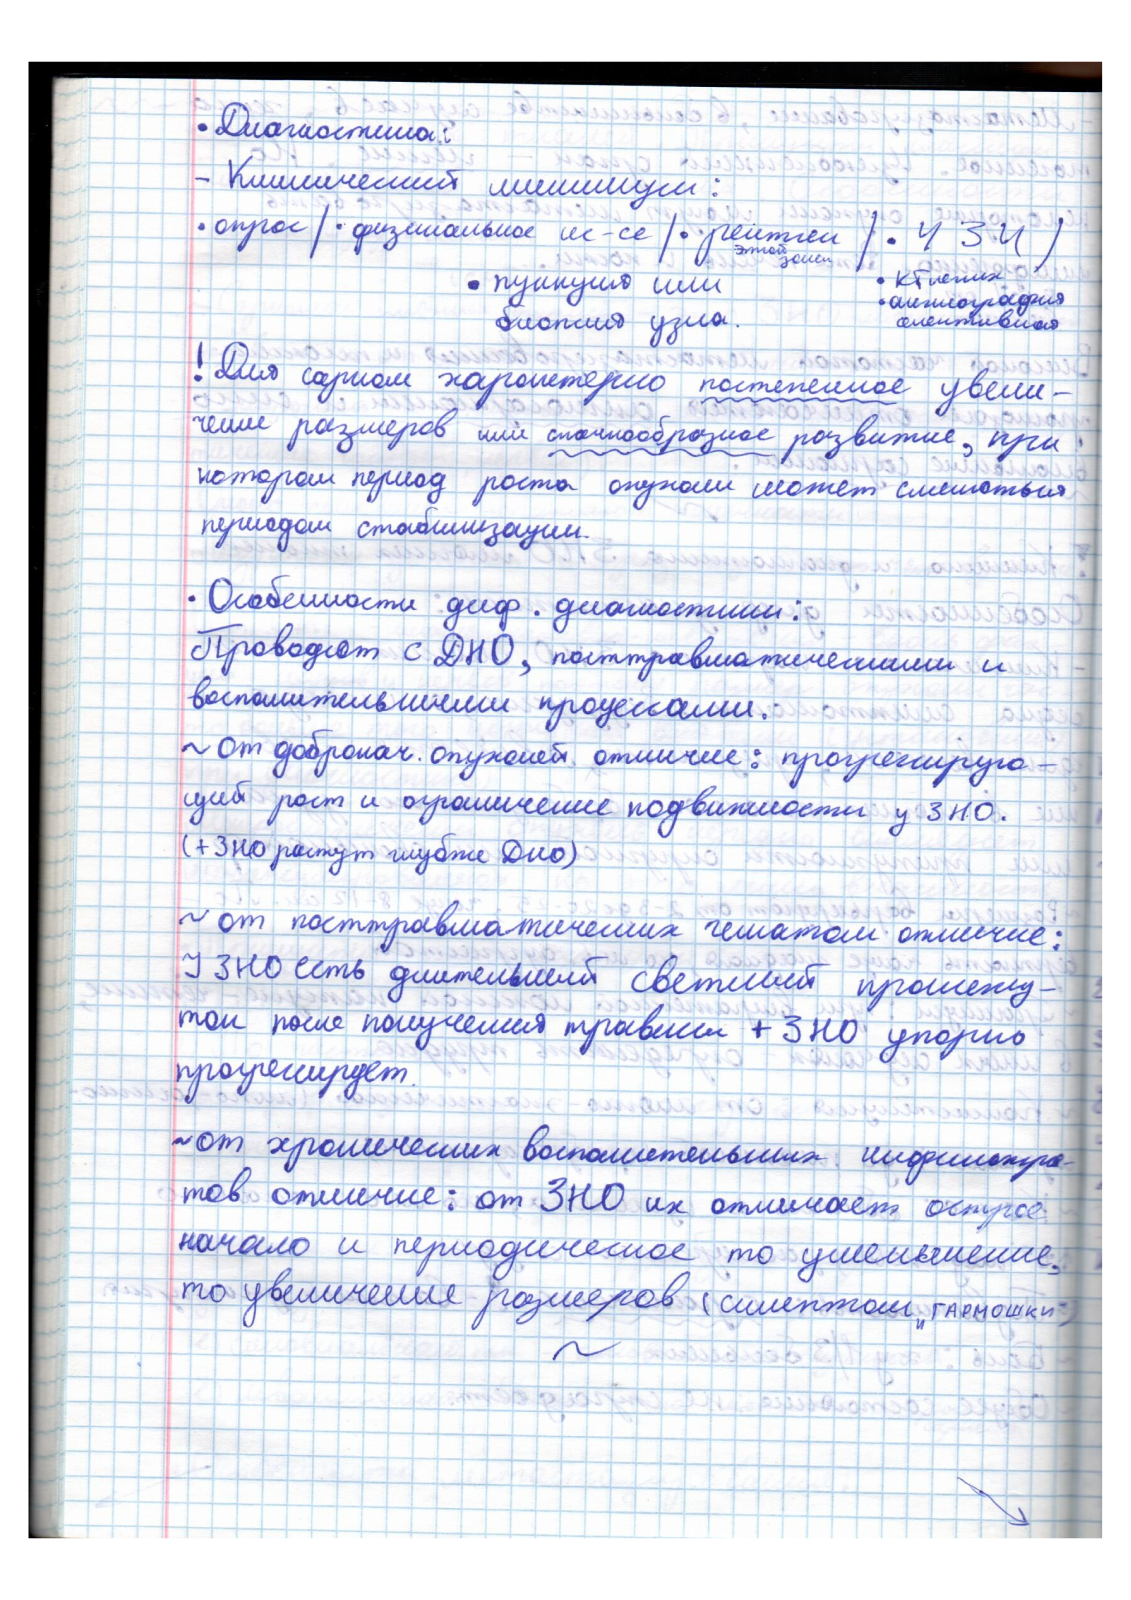 • Диагностика:
– Клинический минимум:
• опрос / • физикальное ис-се / • рентген / • УЗИ /
этой зоны
• пункция или
биопсия узла.
• КТ легких
• ангиография
селективная
! Для сарком характерно постепенное увели-
чение размеров или скачкообразное развитие, при
котором период роста опухоли может сменяться
периодом стабилизации.
• Особенности диф. диагностики:
Проводют с ДНО, посттравматическими и
воспалительными процессами.
~ от доброкач. опухолей отличие: прогрессирую-
щий рост и ограничение подвижности у ЗНО.
(+ЗНО растут глубже ДНО)
~ от посттравматических гематом отличие:
У ЗНО есть длительный светлый промежу-
ток после получения травмы + ЗНО упорно
прогрессирует.
~ от хронических воспалительных инфильтра-
тов отличие: от ЗНО их отличает острое
начало и периодическое то уменьшение,
то увеличение размеров (симптом „ГАРМОШКИ")
~